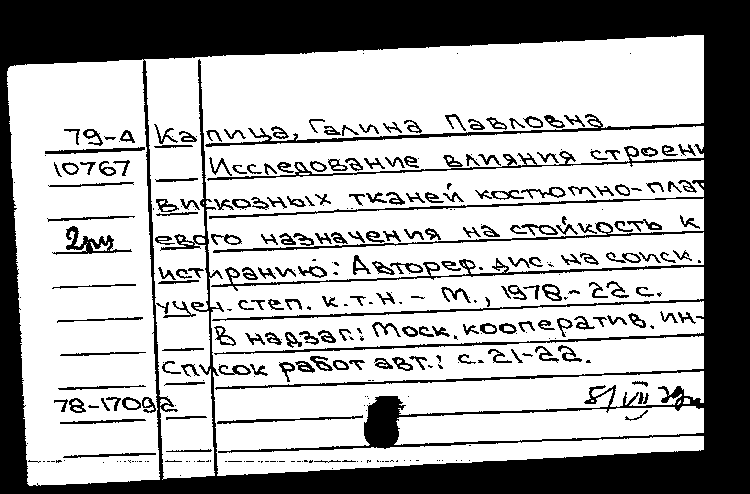 79-А Капица, Галина Павловна
10767 Исследование влияния строени
вискозных тканей костюмно-плат
евого назначения на стойкость к
истиранию: Автореф. дис. на соиск.
учен. степ. к.т.н. - М., 1978.-22 с.
В надзаг.: Моск. кооператив. ин-
список работ авт.: с. 21-22.
78-17092